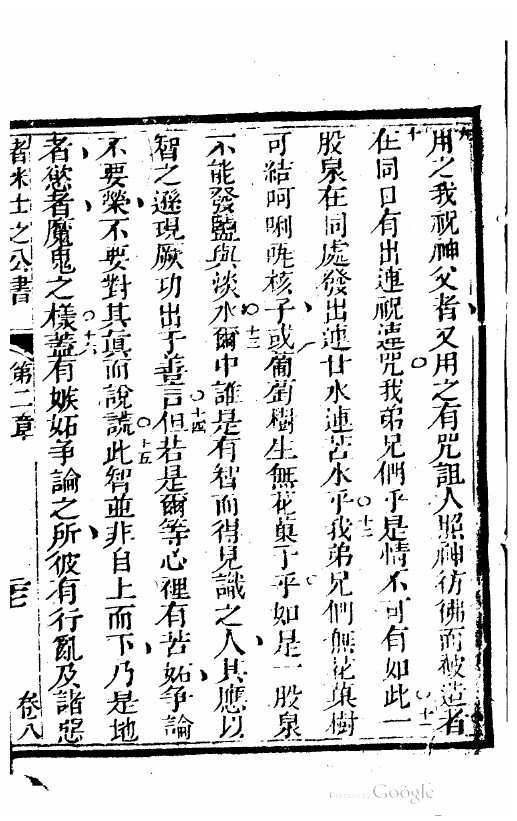 九
用之我祝神父者又用之有咒詛人照神彷彿而被造者
十
在同口有出連祝連咒我弟兄們乎是情不可有如此
十一
一股泉在同處發出連甘水連苦水乎我弟兄們無花菓樹
十二
可結呵唎 核子或葡萄樹生無花菓子乎如是一股泉
不能發鹽與淡水爾中誰是有智而得見識之人其應以
十三
智之遜現厥功出于善言但若是爾等心裡有苦妬爭論
十四
不要榮不要對其真而說謊此智並非自上而下乃是地
十五
者慾者魔鬼之樣蓋有嫉妬爭論之所彼有行亂及諸惡
十六
者米士之公書 第二章 卷八
Digitized by Google